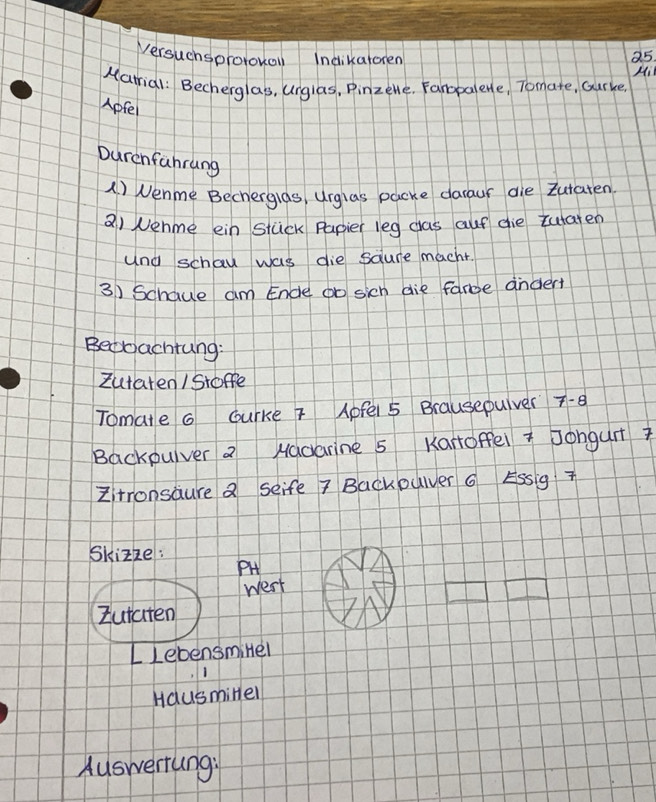 Versuchsprotokoll Indikatoren
25.
Mi
Matrial: Becherglas, Urglas, Pinzette. Farbpalette, Tomate, Gurke,
Apfel
Durchführung
1) Nehme Becherglas, Urglas packe darauf die Zutaten.
2) Nehme ein Stück Papier leg das auf die Zutaten
und schau was die Säure macht.
3) Schaue am Ende ob sich die farbe ändert
Beobachtung:
Zutaten / Stoffe
Tomate 6 Gurke 7 Apfel 5 Brausepulver 7-8
Backpulver 2 Madarine 5 Kartoffel 7 Johgurt 7
Zitronsäure 2 Seife 7 Backpulver 6 Essig 7
Skizze:
PH
Wert
Zutaten
Lebensmittel
Hausmittel
Auswertung: